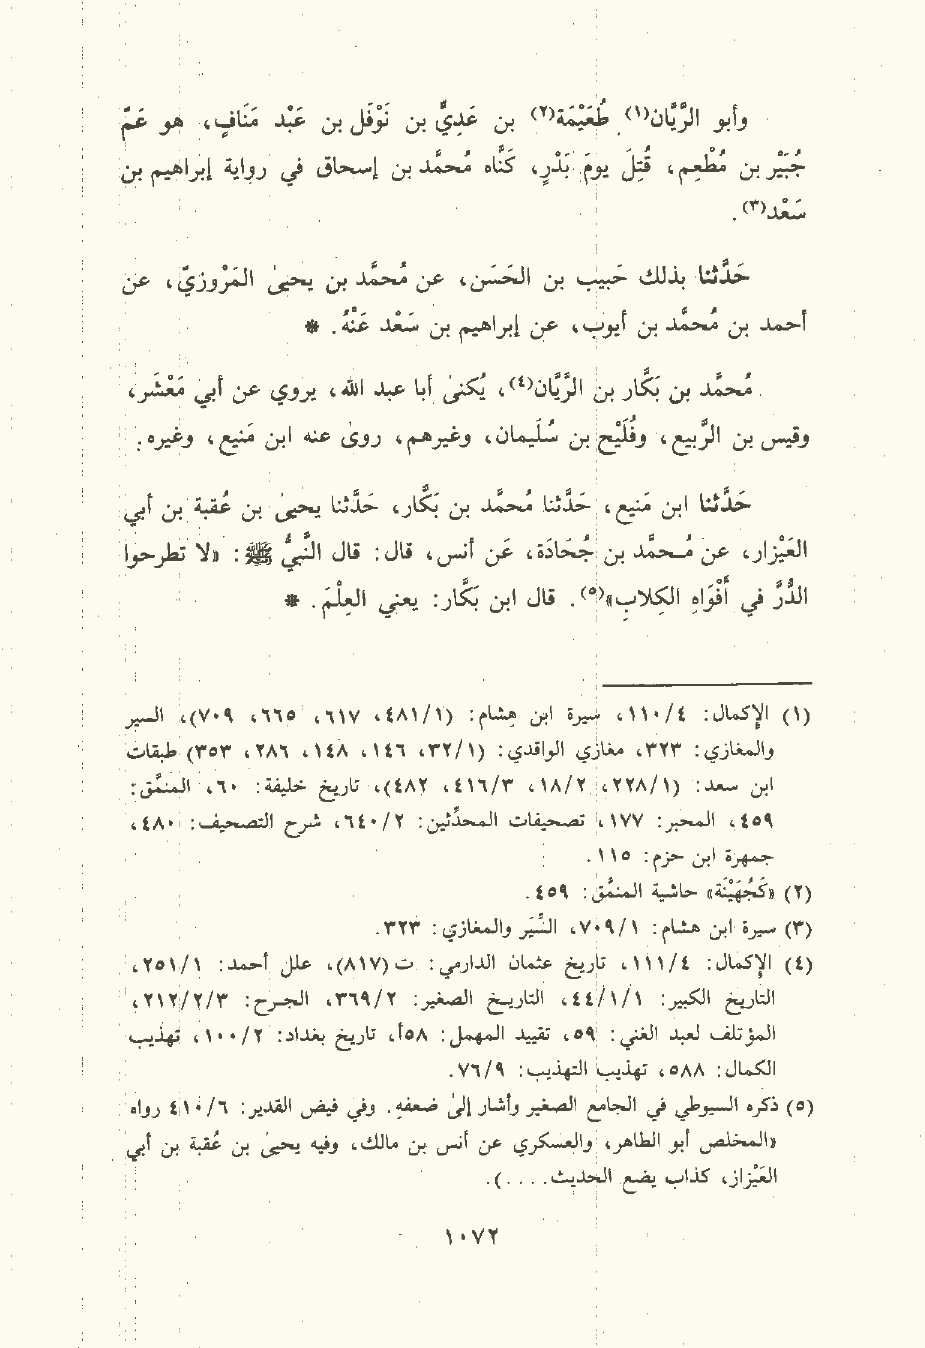 وأبو الرَّيَّان(١) طُعَيْمَة(٢) بن عَدِيٍّ بن نَوْفَل بن عَبْد مَنَافٍ، هو عَمّ
جُبَيْر بن مُطْعِم، قُتِلَ يومَ بَدْرٍ، كَنَّاه مُحمَّد بن إسحاق في رواية إبراهيم بن
سَعْد(٣).
حَدَّثنا بذلك حَبيب بن الحَسَن، عن مُحمَّد بن يحيىٰ المَرْوزيّ، عن
أحمد بن مُحمَّد بن أيوب، عن إبراهيم بن سَعْد عَنْهُ. *
مُحمَّد بن بَكَّار بن الرَّيَّان(٤)، يُكنىٰ أبا عبد الله، يروي عن أبي مَعْشَر،
وقيس بن الرَّبيع، وفُلَيْح بن سُلَيمان، وغيرهم، روىٰ عنه ابن مَنيع، وغيره.
حَدَّثنا ابن مَنيع، حَدَّثنا مُحمَّد بن بَكَّار، حَدَّثنا يحيىٰ بن عُقبة بن أبي
العَيْزار، عن مُحمَّد بن جُحَادَة، عَن أنس، قال: قال النَّبيُّ ﷺ: «لا تطرحوا
الدُّرَّ في أَفْوَاهِ الكِلابِ»(٥). قال ابن بَكَّار: يعني العِلْمَ. *
(١) الإكمال: ١١٠/٤، سيرة ابن هشام: (٤٨١/١، ٦١٧، ٦٦٥، ٧٠٩)، السير
والمغازي: ٣٢٣، مغازي الواقدي: (٣٢/١، ١٤٦، ١٤٨، ٢٨٦، ٣٥٣) طبقات
ابن سعد: (٢٢٨/١، ١٨/٢، ٤١٦/٣، ٤٨٢)، تاريخ خليفة: ٦٠، المنمَّق:
٤٥٩، المحبر: ١٧٧، تصحيفات المحدِّثين: ٦٤٠/٢، شرح التصحيف: ٤٨٠،
جمهرة ابن حزم: ١١٥.
(٢) «كَجُهَيْنَة» حاشية المنمَّق: ٤٥٩.
(٣) سيرة ابن هشام: ٧٠٩/١، السِّيَر والمغازي: ٣٢٣.
(٤) الإكمال: ١١١/٤، تاريخ عثمان الدارمي: ت (٨١٧)، علل أحمد: ٢٥١/١،
التاريخ الكبير: ٤٤/١/١، التاريخ الصغير: ٣٦٩/٢، الجرح: ٢١٢/٢/٣،
المؤتلف لعبد الغني: ٥٩، تقييد المهمل: ٥٨أ، تاريخ بغداد: ١٠٠/٢، تهذيب
الكمال: ٥٨٨، تهذيب التهذيب: ٧٦/٩.
(٥) ذكره السيوطي في الجامع الصغير وأشار إلىٰ ضعفه. وفي فيض القدير: ٤١٠/٦ رواه
«المخلص أبو الطاهر، والعسكري عن أنس بن مالك، وفيه يحيىٰ بن عُقبة بن أبي
العَيْزاز، كذاب يضع الحديث....).
١٠٧٢